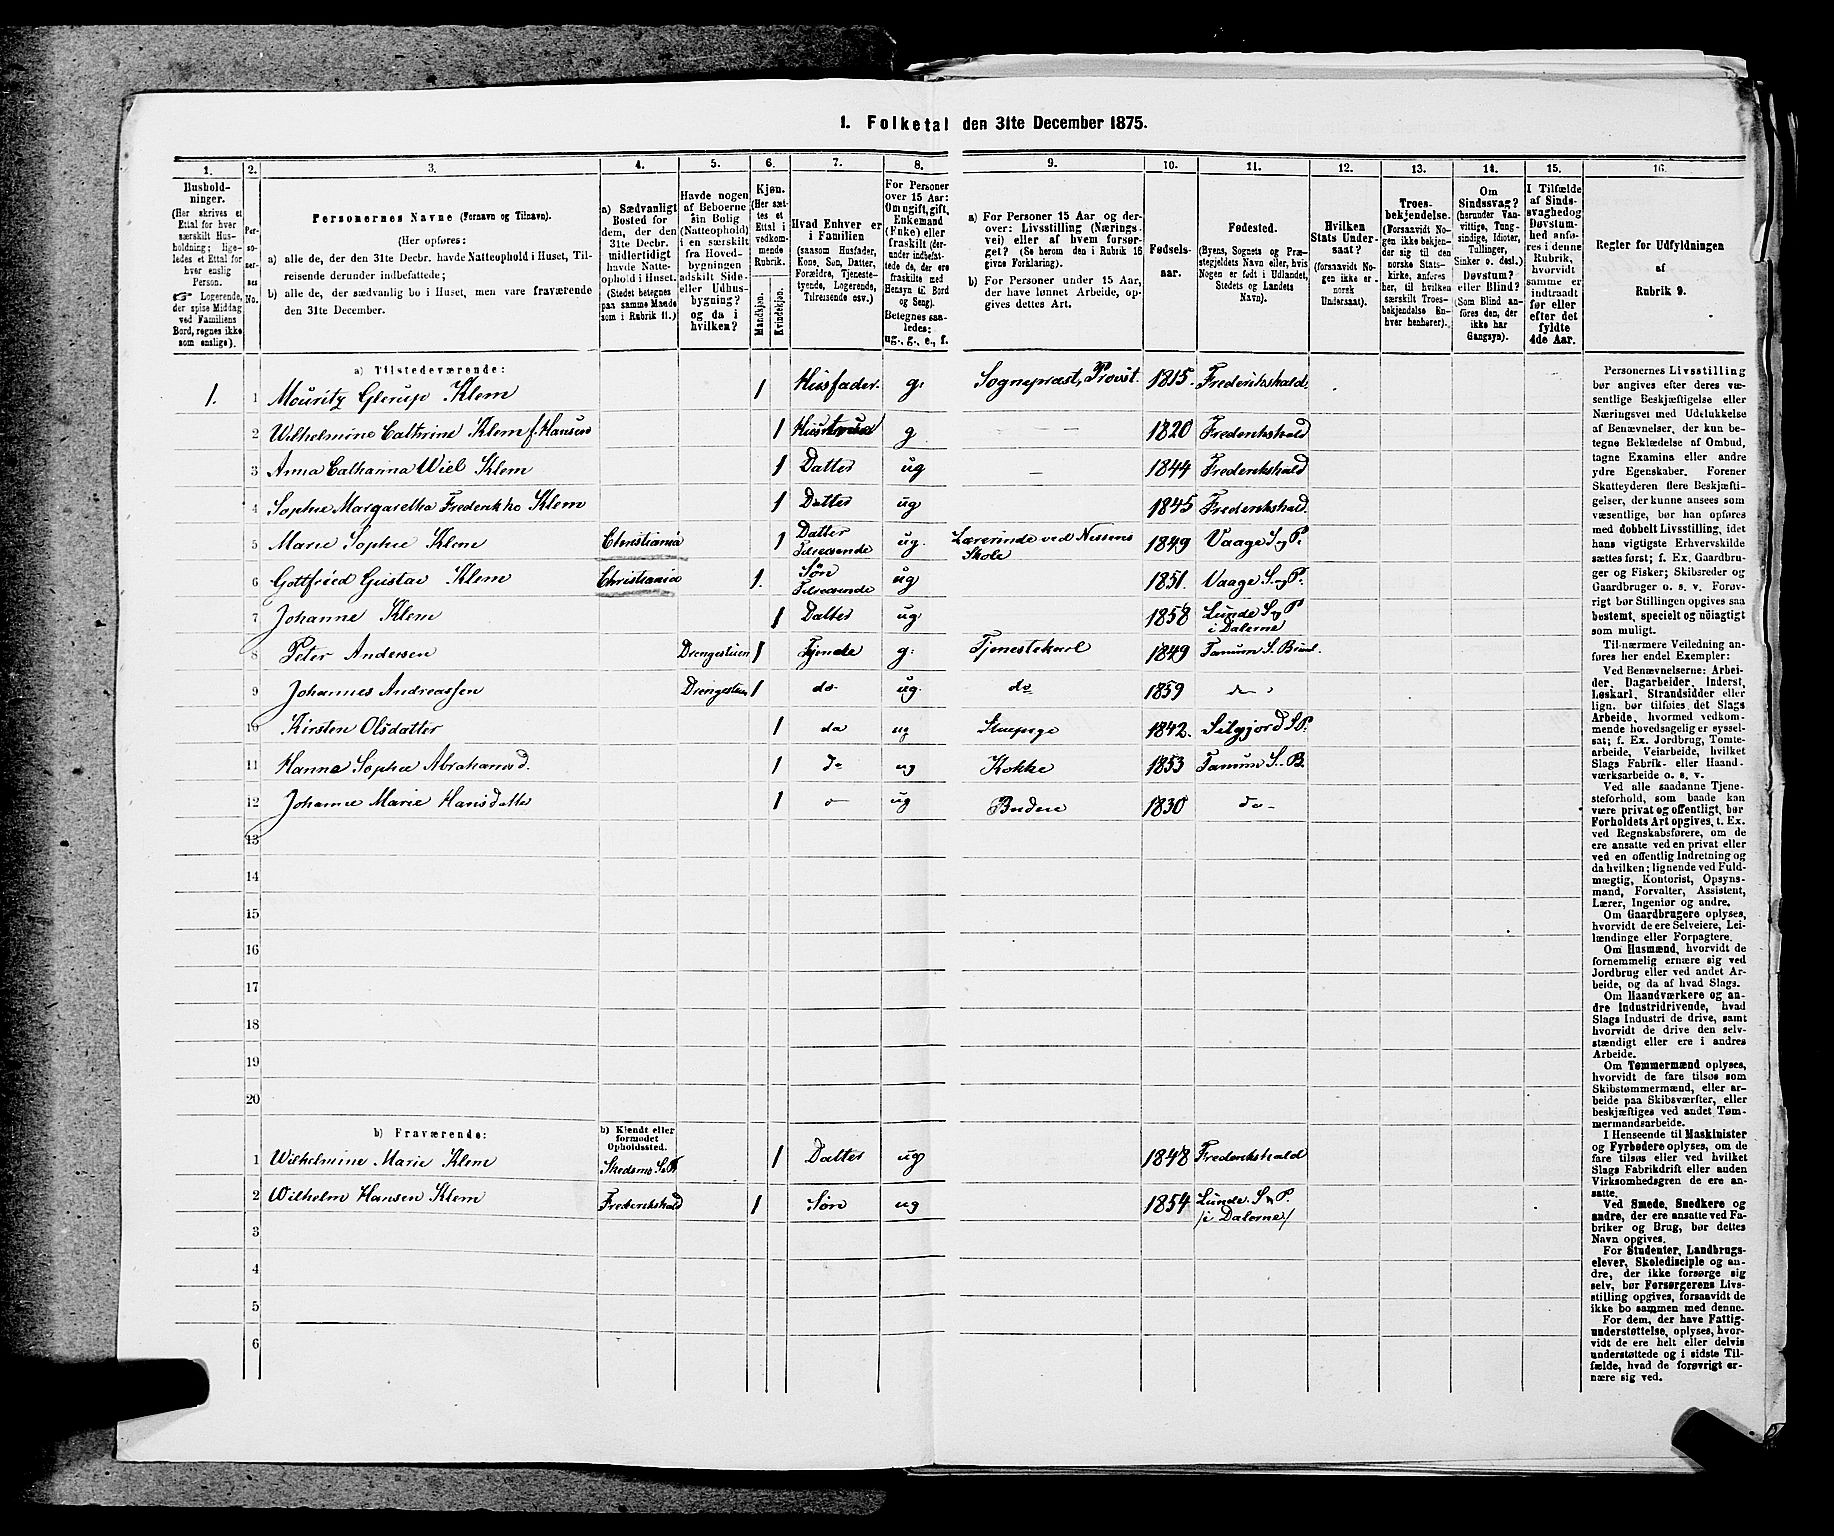 1. Folketal den 31te December 1875.
1. 2. 3. 4. 5. 6. 7. 8. 9. 10. 11. 12. 13. 14. 15. 16.
Hushold-
ninger.
(Her skrives et
Ettal for hver
særskilt Hus-
holdning; lige-
ledes et Ettal for
hver enslig
Person.
☞ Logerende,
der spise Middag
ved Familiens
Bord, regnes ikke
som enslige).
Per-
so-
ner-
nes
No.
Personernes Navne (Fornavn og Tilnavn).
(Her opføres:
a) alle de, der den 31te Decbr. havde Natteophold i Huset, Til-
reisende derunder indbefattede;
b) alle de, der sædvanlig bo i Huset, men vare fraværende
den 31te December.
a) Sædvanligt
Bosted for
dem, der den
31te Decbr.
midlertidigt
havde Natte-
ophold i Huset
(Stedet betegnes
paa samme Maade
som i Rubrik 11.)
Havde nogen
af Beboerne
sin Bolig
(Natteophold)
i en særskilt
fra Hoved-
bygningen
adskilt Side-
eller Udhus-
bygning?
og da i
hvilken?
Kjøn.
(Her sæt-
tes et
Ettal i
vedkom-
mende
Rubrik.
Mandkjøn.
Kvindekjøn.
Hvad Enhver er
i Familien
(saasom Husfader,
Kone, Søn, Datter,
Forældre, Tjeneste-
tyende, Logerende,
Tilreisende osv.)
For Personer
over 15 Aar:
Om ugift, gift,
Enkemand
(Enke) eller
fraskilt (der-
under indbefat-
tede de, der ere
fraskilte med
Hensyn til Bord
og Seng).
Betegnes saa-
ledes:
ug., g., e., f.
a) For Personer 15 Aar og der-
over: Livsstilling (Nærings-
vei) eller af hvem forsør-
get? (Se herom den i Rubrik 16
givne Forklaring).
b) For Personer under 15 Aar,
der have lønnet Arbeide, op-
gives dettes Art.
Fødsels-
aar.
Fødested.
(Byens, Sognets og Præ-
stegjeldets Navn eller, hvis
Nogen er født i Udlandet,
Stedets og Landets
Navn).
Hvilken
Stats Under-
saat?
(forsaavidt No-
gen ikke er
norsk
Undersaat).
Troes-
bekjendelse.
(Forsaavidt No-
gen ikke bekjen-
der sig til den
norske Stats-
kirke, anføres
her, til hvilken
særskilt Troes-
bekjendelse En-
hver henhører).
Om
Sindssvag?
(herunder Van-
vittige, Tung-
sindige, Idioter,
Tullinger,
Sinker o. desl.)
Døvstum?
eller Blind?
(Som Blind an-
føres den, der
ikke har
Gangsyn).
I Tilfælde
af Sinds-
svaghed og
Døvstum-
hed anfø-
res i denne
Rubrik,
hvorvidt
samme er
indtraadt
før eller
efter det
fyldte
4de Aar.
Regler for Udfyldningen
af
Rubrik 9.
a) Tilstedeværende:
1. 1 Mouritz Glerup Klem 1 Husfader g: Sognepræst, Provst. 1815. Frederikshald
2 Wilhelmine Cathrine Klem f. Hansen 1 Hustrue g. — 1820 Frederikshald
3 Anna Catharina Wiel Klem 1 Datter ug — 1844 Frederikshald
4 Sophie Margaretha Frederikke Klem 1 Datter ug 1845 Frederikshald.
5 Marie Sophie Klem Christiania 1 Datter Tilreisende ug. Lærerinde ved Nissens Skole 1849 Vaage S. og P.
6 Gottfried Gustav Klem Christiania 1. Søn Tilreisende ug 1851. Vaage S. og P.
7 Johanne Klem 1 Datter ug 1858 Lunde S. og P. i Dalerne
8 Peter Andersen Drengestuen 1 Tjende g: Tjenestekarl 1849 Tanum S.
9 Johannes Andreassen Drengestuen 1 do ug. do 1859 do
10 Kirsten Olsdatter 1 do ug Stuepige 1842. Silgjord S. P.
11 Hanne Sophie Abrahamsd. 1 do ug Kokke 1853 Tanum S. B.
12 Johanne Marie Hansdatter 1 ug Budeie 1830 do
13
14
15
16
17
18
19
20
b) Fraværende:
b) Kjendt eller
formodet
Opholdssted.
1 Wilhelmine Marie Klem Skedsmo S. P. 1 Datter ug 1848 Frederikshald
2 Wilhelm Hansen Klem Frederikshald 1 Søn ug 1854 Lunde. S. og P. /i Dalerne/
3
4
5
6
Personernes Livsstilling
bør angives efter deres væ-
sentlige Beskjæftigelse eller
Næringsvei med Udelukkelse
af Benævnelser, der kun be-
tegne Beklædelse af Ombud,
tagne Examina eller andre
ydre Egenskaber. Forener
Skatteyderen flere Beskjæfti-
gelser, der kunne ansees som
væsentlige, bør han opføres
med dobbelt Livsstilling, idet
hans vigtigste Erhvervskilde
sættes først; f. Ex. Gaardbru-
ger og Fisker; Skibsreder og
Gaardbruger o. s. v. Forøv-
rigt bør Stillingen opgives saa
bestemt, specielt og nöiagtigt
som muligt.
Til nærmere Veiledning an-
føres her endel Exempler:
Ved Benævnelserne: Arbei-
der, Dagarbeider, Inderst,
Løskarl, Strandsidder eller
lign. bør tilføies det Slags
Arbeide, hvormed vedkom-
mende hovedsagelig er syssel-
sat; f. Ex. Jordbrug, Tomte-
arbeide, Veiarbeide, hvilket
Slags Fabrik- eller Haand-
værksarbeide o. s. v.
Ved alle saadanne Tjene-
steforhold, som baade kan
være privat og offentligt, bør
Forholdets Art opgives, t. Ex.
ved Regnskabsførere, om de
ere ansatte ved en privat eller
ved en offentlig Indretning og
da hvilken; lignende ved Fuld-
mægtig, Kontorist, Opsyns-
mand, Forvalter, Assistent,
Lærer, Ingeniør og andre.
Om Gaardbrugere oplyses,
hvorvidt de ere Selveiere, Lei-
lændinge eller Forpagtere.
Om Husmænd, hvorvidt de
fornemmelig ernære sig ved
Jordbrug eller ved andet Ar-
beide, og da af hvad Slags.
Om Haandværkere og an-
dre Industridrivende, hvad
Slags Industri de drive, samt
hvorvidt de drive den selv-
stændigt eller ere i andres
Arbeide.
Om Tømmermænd oplyses,
hvorvidt de fare tilsøs som
Skibstømmermænd, eller ar-
beide paa Skibsværfter, eller
beskjæftiges ved andet Tøm-
mermandsarbeide.
I Henseende til Maskinister
og Fyrbødere oplyses, om de
fare tilsøs eller ved hvilket
Slags Fabrikdrift eller anden
Virksomhedsgren de ere an-
satte.
Ved Smede, Snedkere og
andre, der ere ansatte ved Fa-
briker og Brug, bør dettes
Navn opgives.
For Studenter, Landbrugs-
elever, Skoledisciple og an-
dre, der ikke forsørge sig
selv, bør Forsørgerens Livs-
stilling opgives, forsaavidt de
ikke bo sammen med denne.
For dem, der have Fattig-
understøttelse, oplyses, hvor-
vidt de ere helt eller delvis
understøttede og i sidste Til-
fælde, hvad de forøvrigt er-
nære sig ved.